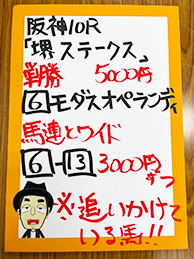 阪神10R
「堺ステークス」
単勝 5000円
6モダスオペランディ
馬連とワイド
6-13 3000円ずつ
※追いかけて
いる馬!!